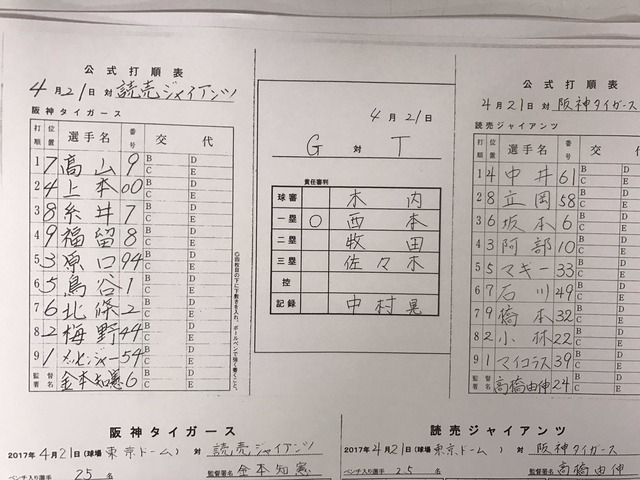 公式打順表
4月21日 対 読売ジャイアンツ
阪神タイガース
打順 位置 選手名 番号 交代
1 7 高山 9 B C D E
2 4 上本 00 B C D E
3 8 糸井 7 B C D E
4 9 福留 8 B C D E
5 3 原口 94 B C D E
6 5 鳥谷 1 B C D E
7 6 北條 2 B C D E
8 2 梅野 44 B C D E
9 1 メッセンジャー 54 B C D E
監督署名 金本知憲 6
4月21日
G 対 T
責任審判
球審 木内
一塁 ○ 西本
二塁 牧田
三塁 佐々木
控
記録 中村晃
公式打順表
4月21日 対 阪神タイガース
読売ジャイアンツ
打順 位置 選手名 番号 交
1 4 中井 61 B C D E
2 8 立岡 58 B C D E
3 6 坂本 6 B C D E
4 3 阿部 10 B C D E
5 5 マギー 33 B C D E
6 7 石川 49 B C D E
7 9 橋本 32 B C D E
8 2 小林 22 B C D E
9 1 マイコラス 39 B C D E
監督署名 高橋由伸 24
阪神タイガース
2017年4月21日(球場 東京ドーム) 対 読売ジャイアンツ
ベンチ入り選手 25名 監督署名 金本知憲
読売ジャイアンツ
2017年4月21日(球場 東京ドーム) 対 阪神タイガース
ベンチ入り選手 25名 監督署名 高橋由伸